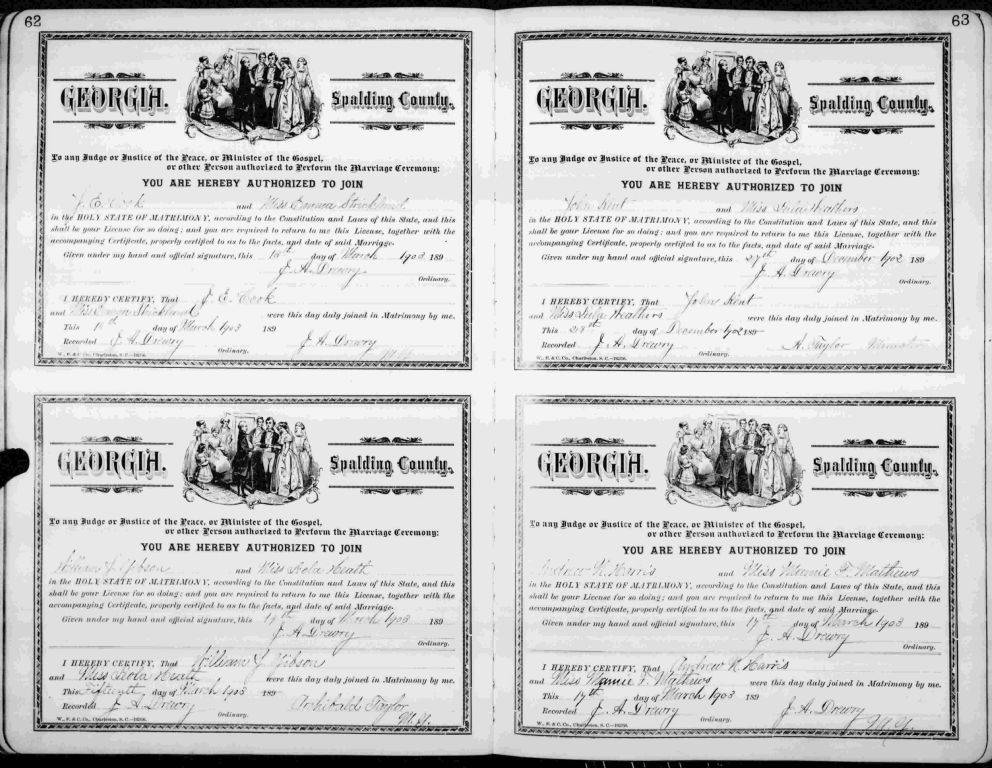 62
GEORGIA. Spalding County,
To any Judge or Justice of the Peace, or Minister of the Gospel,
or other Person authorized to Perform the Marriage Ceremony:
YOU ARE HEREBY AUTHORIZED TO JOIN
J. E. Cook and Miss Emma Strickland
in the HOLY STATE OF MATRIMONY, according to the Constitution and Laws of this State, and this
shall be your License for so doing; and you are required to return to me this License, together with the
accompanying Certificate, properly certified to as to the facts, and date of said Marriage.
Given under my hand and official signature, this day of March 1903 189
J. A. Drewry
Ordinary.
I HEREBY CERTIFY, That J. E. Cook
and Miss Emma Strickland were this day duly joined in Matrimony by me.
This day of March 1903 189
Recorded J. A. Drewry J. A. Drewry
Ordinary.
W., E. & C. Co., Charleston, S. C.
GEORGIA. Spalding County,
To any Judge or Justice of the Peace, or Minister of the Gospel,
or other Person authorized to Perform the Marriage Ceremony:
YOU ARE HEREBY AUTHORIZED TO JOIN
William J. Gibson and Miss Heath
in the HOLY STATE OF MATRIMONY, according to the Constitution and Laws of this State, and this
shall be your License for so doing; and you are required to return to me this License, together with the
accompanying Certificate, properly certified to as to the facts, and date of said Marriage.
Given under my hand and official signature, this day of March 1903 189
J. A. Drewry
Ordinary.
I HEREBY CERTIFY, That William J. Gibson
and Miss Heath were this day duly joined in Matrimony by me.
This Fifteenth day of March 1903 189
Recorded J. A. Drewry Archibald Taylor
Ordinary. M. G.
W., E. & C. Co., Charleston, S. C.
63
GEORGIA. Spalding County,
To any Judge or Justice of the Peace, or Minister of the Gospel,
or other Person authorized to Perform the Marriage Ceremony:
YOU ARE HEREBY AUTHORIZED TO JOIN
John Kent and Miss Lula Weathers
in the HOLY STATE OF MATRIMONY, according to the Constitution and Laws of this State, and this
shall be your License for so doing; and you are required to return to me this License, together with the
accompanying Certificate, properly certified to as to the facts, and date of said Marriage.
Given under my hand and official signature, this 27th day of December 1902 189
J. A. Drewry
Ordinary.
I HEREBY CERTIFY, That John Kent
and Miss Lula Weathers were this day duly joined in Matrimony by me.
This 28th day of December 1902 189
Recorded J. A. Drewry A. Taylor Minister
Ordinary.
W., E. & C. Co., Charleston, S. C.
GEORGIA. Spalding County,
To any Judge or Justice of the Peace, or Minister of the Gospel,
or other Person authorized to Perform the Marriage Ceremony:
YOU ARE HEREBY AUTHORIZED TO JOIN
Andrew K. Harris and Miss Mamie F. Mathews
in the HOLY STATE OF MATRIMONY, according to the Constitution and Laws of this State, and this
shall be your License for so doing; and you are required to return to me this License, together with the
accompanying Certificate, properly certified to as to the facts, and date of said Marriage.
Given under my hand and official signature, this 17th day of March 1903 189
J. A. Drewry
Ordinary.
I HEREBY CERTIFY, That Andrew K. Harris
and Miss Mamie F. Mathews were this day duly joined in Matrimony by me.
This 17th day of March 1903 189
Recorded J. A. Drewry J. A. Drewry
Ordinary.
W., E. & C. Co., Charleston, S. C.